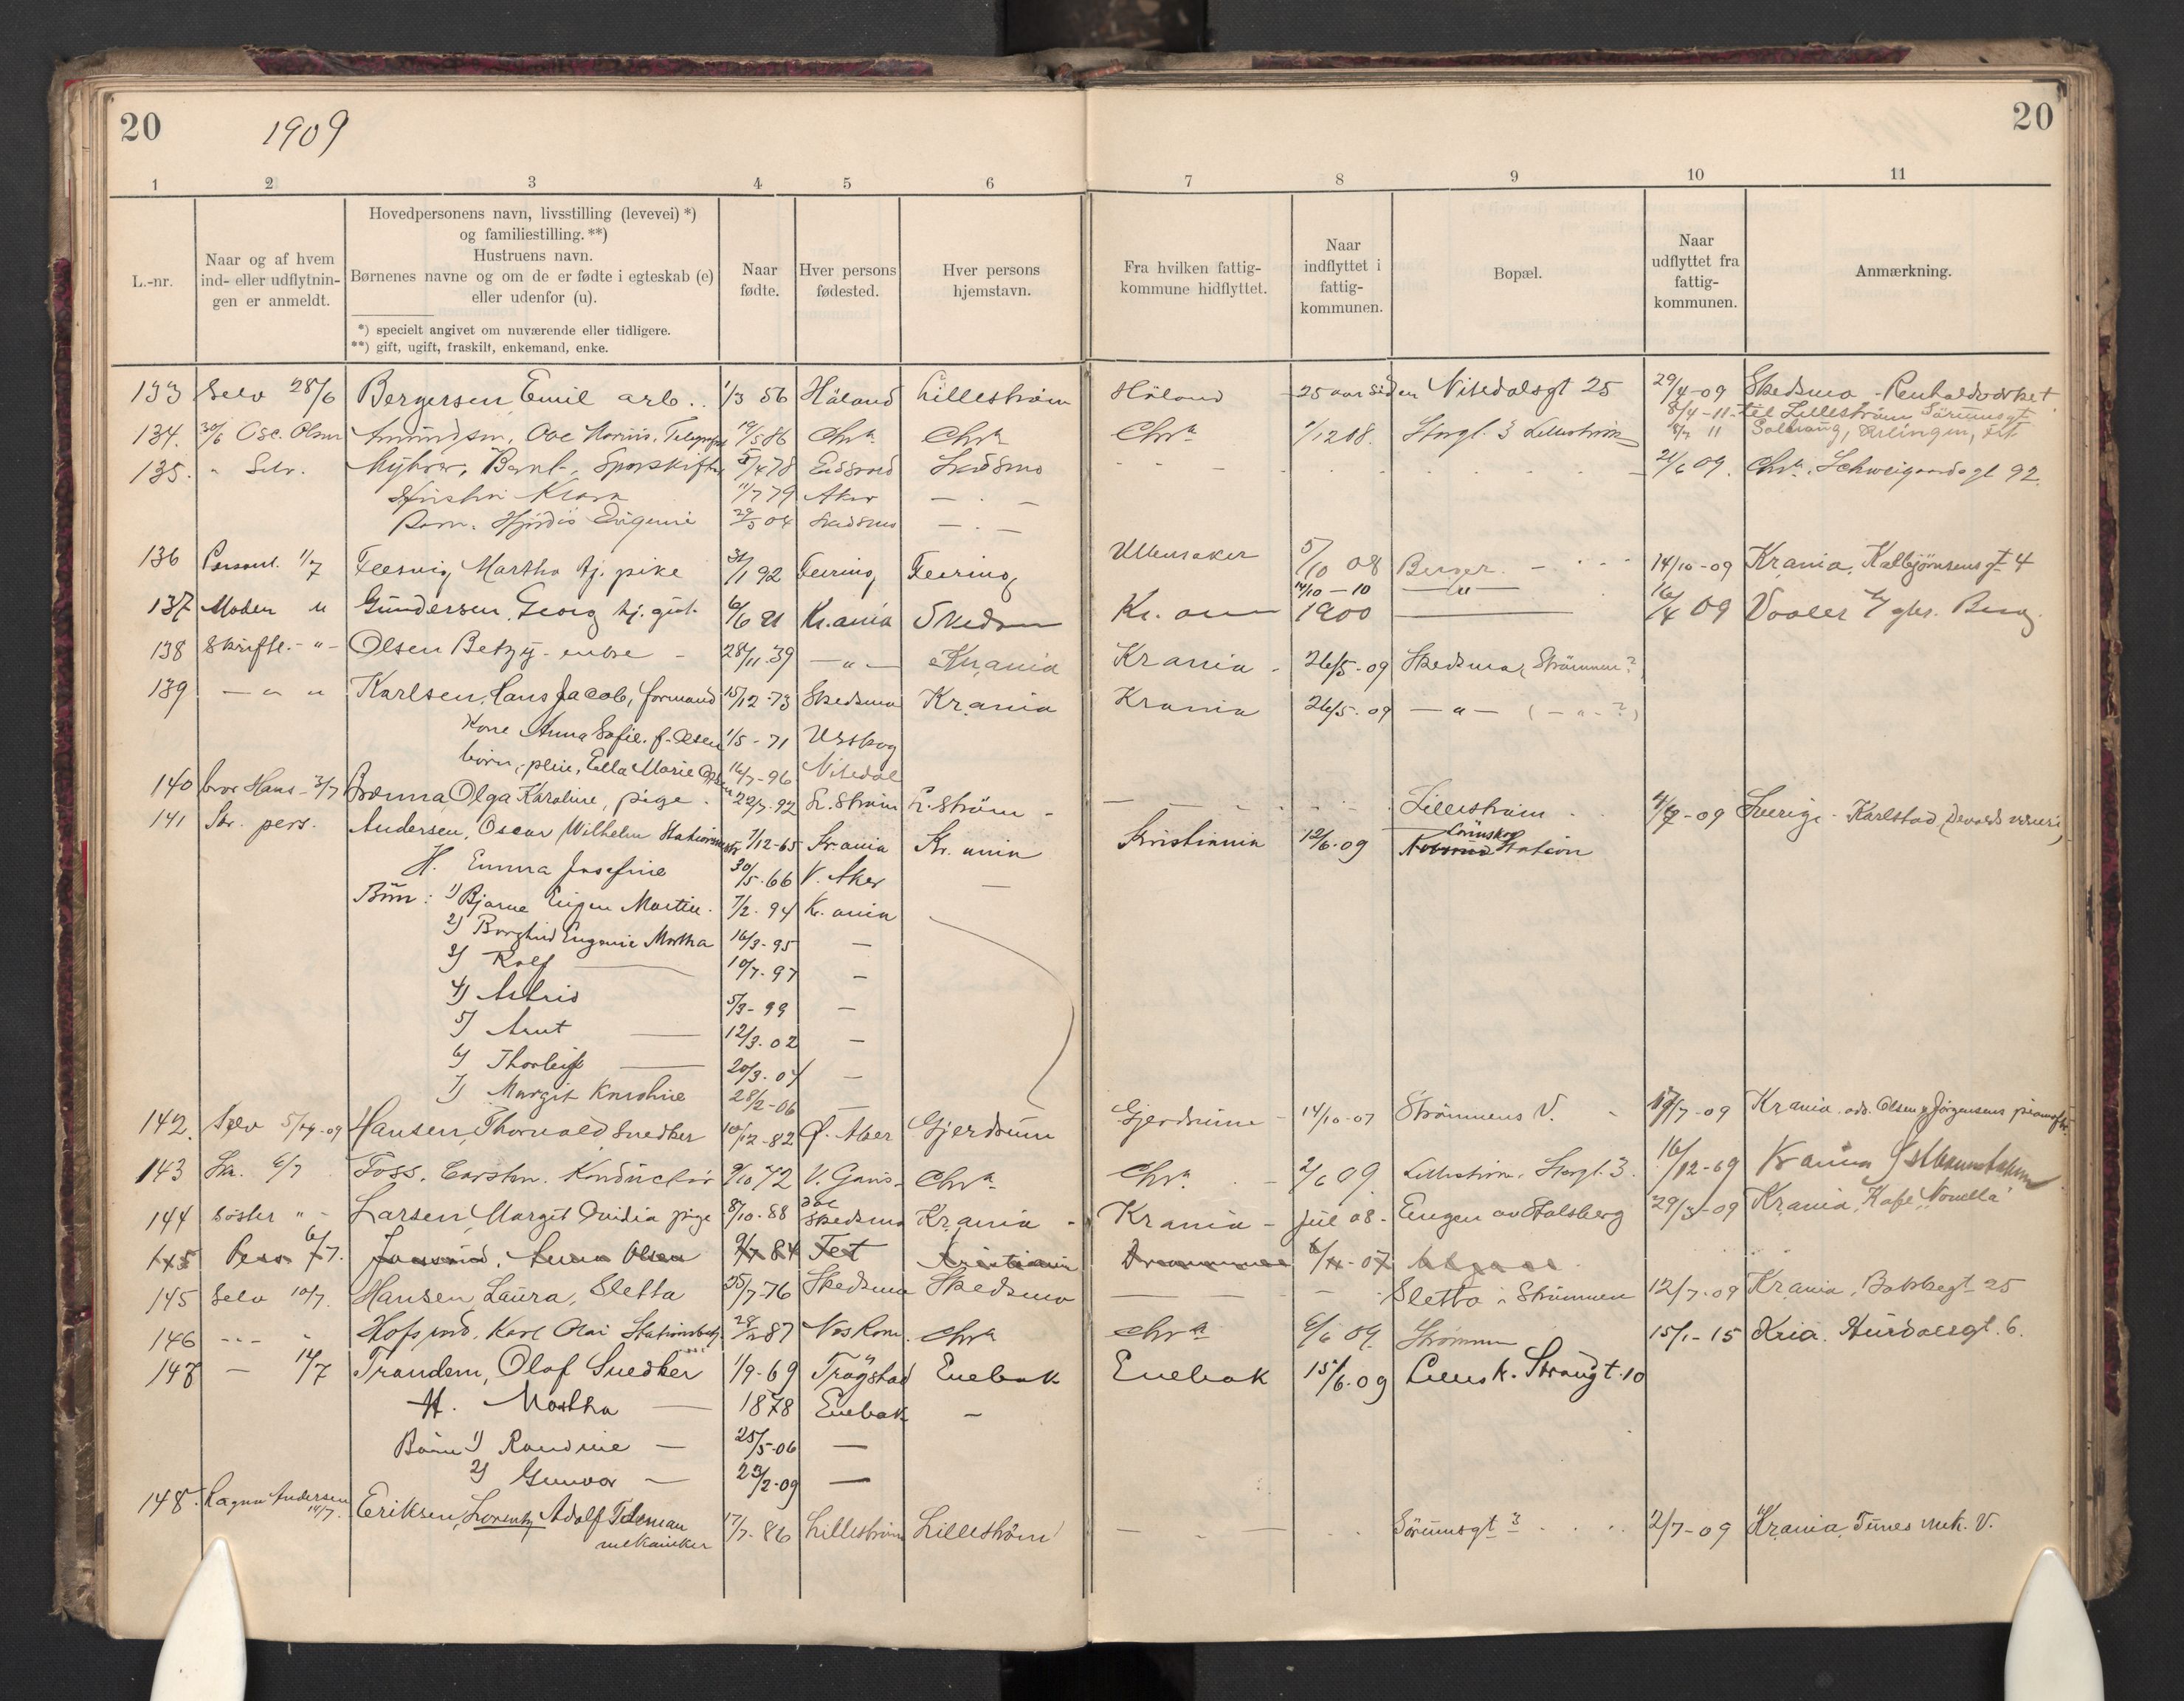 20
1909
20
1 2 3 4 5 6 7 8 9 10 11
L.-nr.
Naar og af hvem
ind- eller udflytnin-
gen er anmeldt.
Hovedpersonens navn, livsstilling (levevei) *)
og familiestilling. **)
Hustruens navn.
Børnenes navne og om de er fødte i egteskab (e)
eller udenfor (u).
*) specielt angivet om nuværende eller tidligere.
**) gift, ugift, fraskilt, enkemand, enke.
Naar
fødte.
Hver persons
fødested.
Hver persons
hjemstavn.
Fra hvilken fattig-
kommune hidflyttet.
Naar
indflyttet i
fattig-
kommunen.
Bopæl.
Naar
udflyttet fra
fattig-
kommunen.
Anmærkning.
133 Selv 28/6 Bergersen Emil arb. 1/3 56 Höland Lilleström Höland 25 aar siden Nitedalsgt 25 29/4-09 Skedsmo - Renholdsverket
8/4-11- til Lilleström Sörumsgt
134. 30/6 Osc. Olsen Amundsen, Ove Marius, Telegrafist 19/5 86 Chra Chra Chra 1/12 08. Storgt. 3 Lilleström 11
135. " Selv. Myhrer, Bernt, Sporskifter 5/4 78 Eidsvold Skedsmo - - - 21/6 09. Chra. Schweigaardsgt 92.
Hustru Klara 11/7 79 Aker - . -
Barn. Hjördis Eugenie 29/5 04 Skedsmo - . -
136 Personl. 1/7 Martha tj. pike 31/1 92 Feiring Feiring Ullensaker 5/10 08 Berger - 14/10-09 Krania, Kalbjörnsensgt 4
14/10-10 - " -
137 Moden " Gundersen, Georg tj. gut 6/6 91 Kr.ania Skedsm Kr. an 1900 16/4 09 Vaaler
138 Skriftl. - " - Olsen Betzy - enke - 28/11 39 - " - Krania Krania - 26/5-09 Skedsmo, Strömmen?
139 - " " Karlsen, Hans Jacob, formand 15/12-73 Skedsmo Krania Krania 26/5-09 - " - ( - " - ?)
Kone Anna Sofie. f. Olsen 1/5-71 Urskog
börn, pleie, Ella Marie Olsen 16/7-96 Nitedal
140 bror Hans - 3/7 Olga Karoline, pige. 22/7-92 L. Ström L. Ström - Lilleström 4/7-09 Sverige - Karlstad
141 Skr. pers. Andersen, Oscar Wilhelm Stationsmstr 7/12-65 Kr.ania Kr. ania Kristiania 12/6-09 Lörenskog Station
H. Emma Josefine 30/5-66 V. Aker -
Börn: 1) Bjarne Eugen Martin. 7/2-94 Kr. ania
2) Borghild Eugenie Martha 16/3-95 -
3) Rolf 10/7-97 -
4) Astrid 5/3-99 -
5) Arnt 12/3-02 -
6) Thorleif 20/3-04 -
7) Margit Karoline 28/2-06
142. Selv Hansen, Thorvald Snedker 10/12-82 Ø. Aker Gjerdrum Gjerdrum - 14/10-07 Strömmens V. 17/7-09 Krania. adr. Olsen & Jörgensens pianofbr.
143 6/7 Foss, Carsten. Konduktör 9/10 72 V. Gaus- Chra Chra. 2/6 09 Lilleström, Storgt. 3. 16/12-09 Krania
dal
144 Söster " - Larsen Margit Ovidia pige 8/10-88 Skedsmo Krania - Krania - Jul 08 - Engen av Stalsberg 29/3-09 Krania, Kafe "Novella"
145 Pers 6/7. Anna Olsen 9/7 84 Tet Kristiania Drammen 07
145 Selv 10/7. Hansen Laura, Sletta 25/7-76 Skedsmo Skedsmo Sletta i Strömmen 12/7-09 Krania,
146 - - - " Karl Olai 87 Chra Chra 6/6 09. Strömmen 15/1-15 Kria. Hurdalsgt. 6.
147 - 14/7 Trandem, Olaf Snedker 1/9-69 Trögstad Enebak Enebak 15/6-09 Lillest. Strandgt. 10
H. Martha 1878 Enebak -
Börn 1) Randine - 25/5-06 -
2) Gunvor - 23/2-09 -
148. Ragna Andersen 14/7. Eriksen, Lorentz Adolf Tideman
mekaniker 17/7-86 Lilleström Lilleström - Sörumsgt 3 2/7-09 Krania, Tunes mek. V.